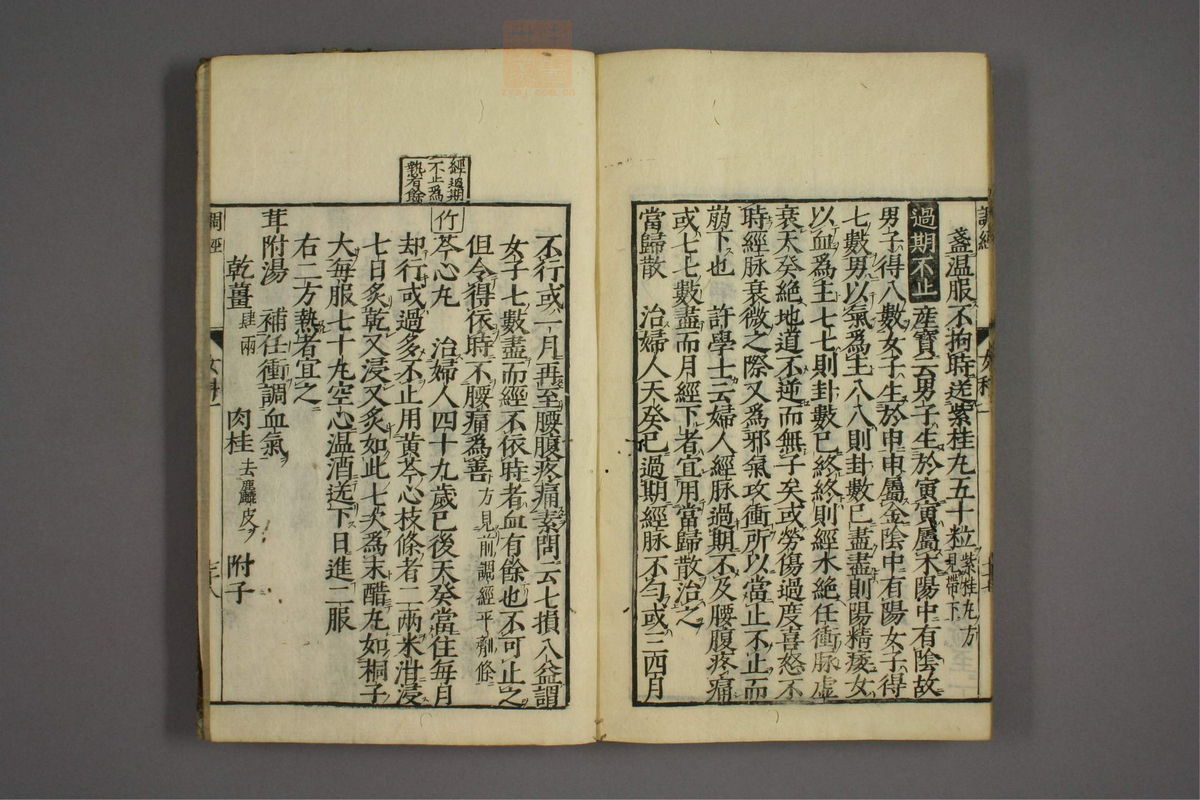 調經
盞温服不拘時送紫桂丸五十粒紫桂丸方見帶下
過期不止 産寶云男子生於寅寅屬木陽中有陰故
男子得八數女子生於申申屬金陰中有陽女子得
七數男以氣爲主八八則卦數已盡盡則陽精痿女
以血爲主七七則卦數已終終則經水絶任衝脉虚
衰天癸絶地道不逆而無子矣或勞傷過度喜怒不
時經脉衰微之際又爲邪氣攻衝所以當止不止而
崩下也 許學士云婦人經脉過期不及腰腹疼痛
或七七數盡而月經下者宜用當歸散治之
當歸散 治婦人天癸已過期經脉不勻或三四月
女科一
經過期
不止爲
熱有餘
不行或一月再至腰腹疼痛素問云七損八益謂
女子七數盡而經不依時者血有餘也不可止之
但令得依時不腰痛爲善方見前調經平劑條
竹
芩心丸 治婦人四十九歲已後天癸當住每月
却行或過多不止用黄芩心枝條者二兩米泔浸
七日炙乾又浸又炙如此七次爲末醋丸如桐子
大每服七十丸空心温酒送下日進二服
右二方熱者宜之
茸附湯 補任衝調血氣
乾薑肆兩 肉桂去麤皮 附子
調經
女科一
三八